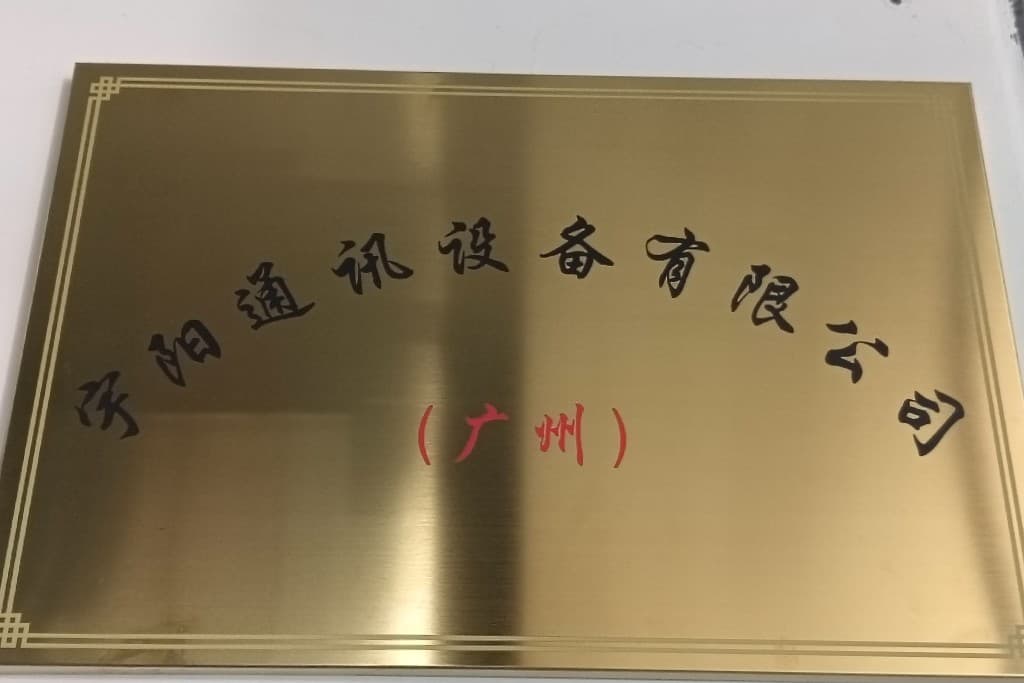 宇阳通讯设备有限公司
(广州)